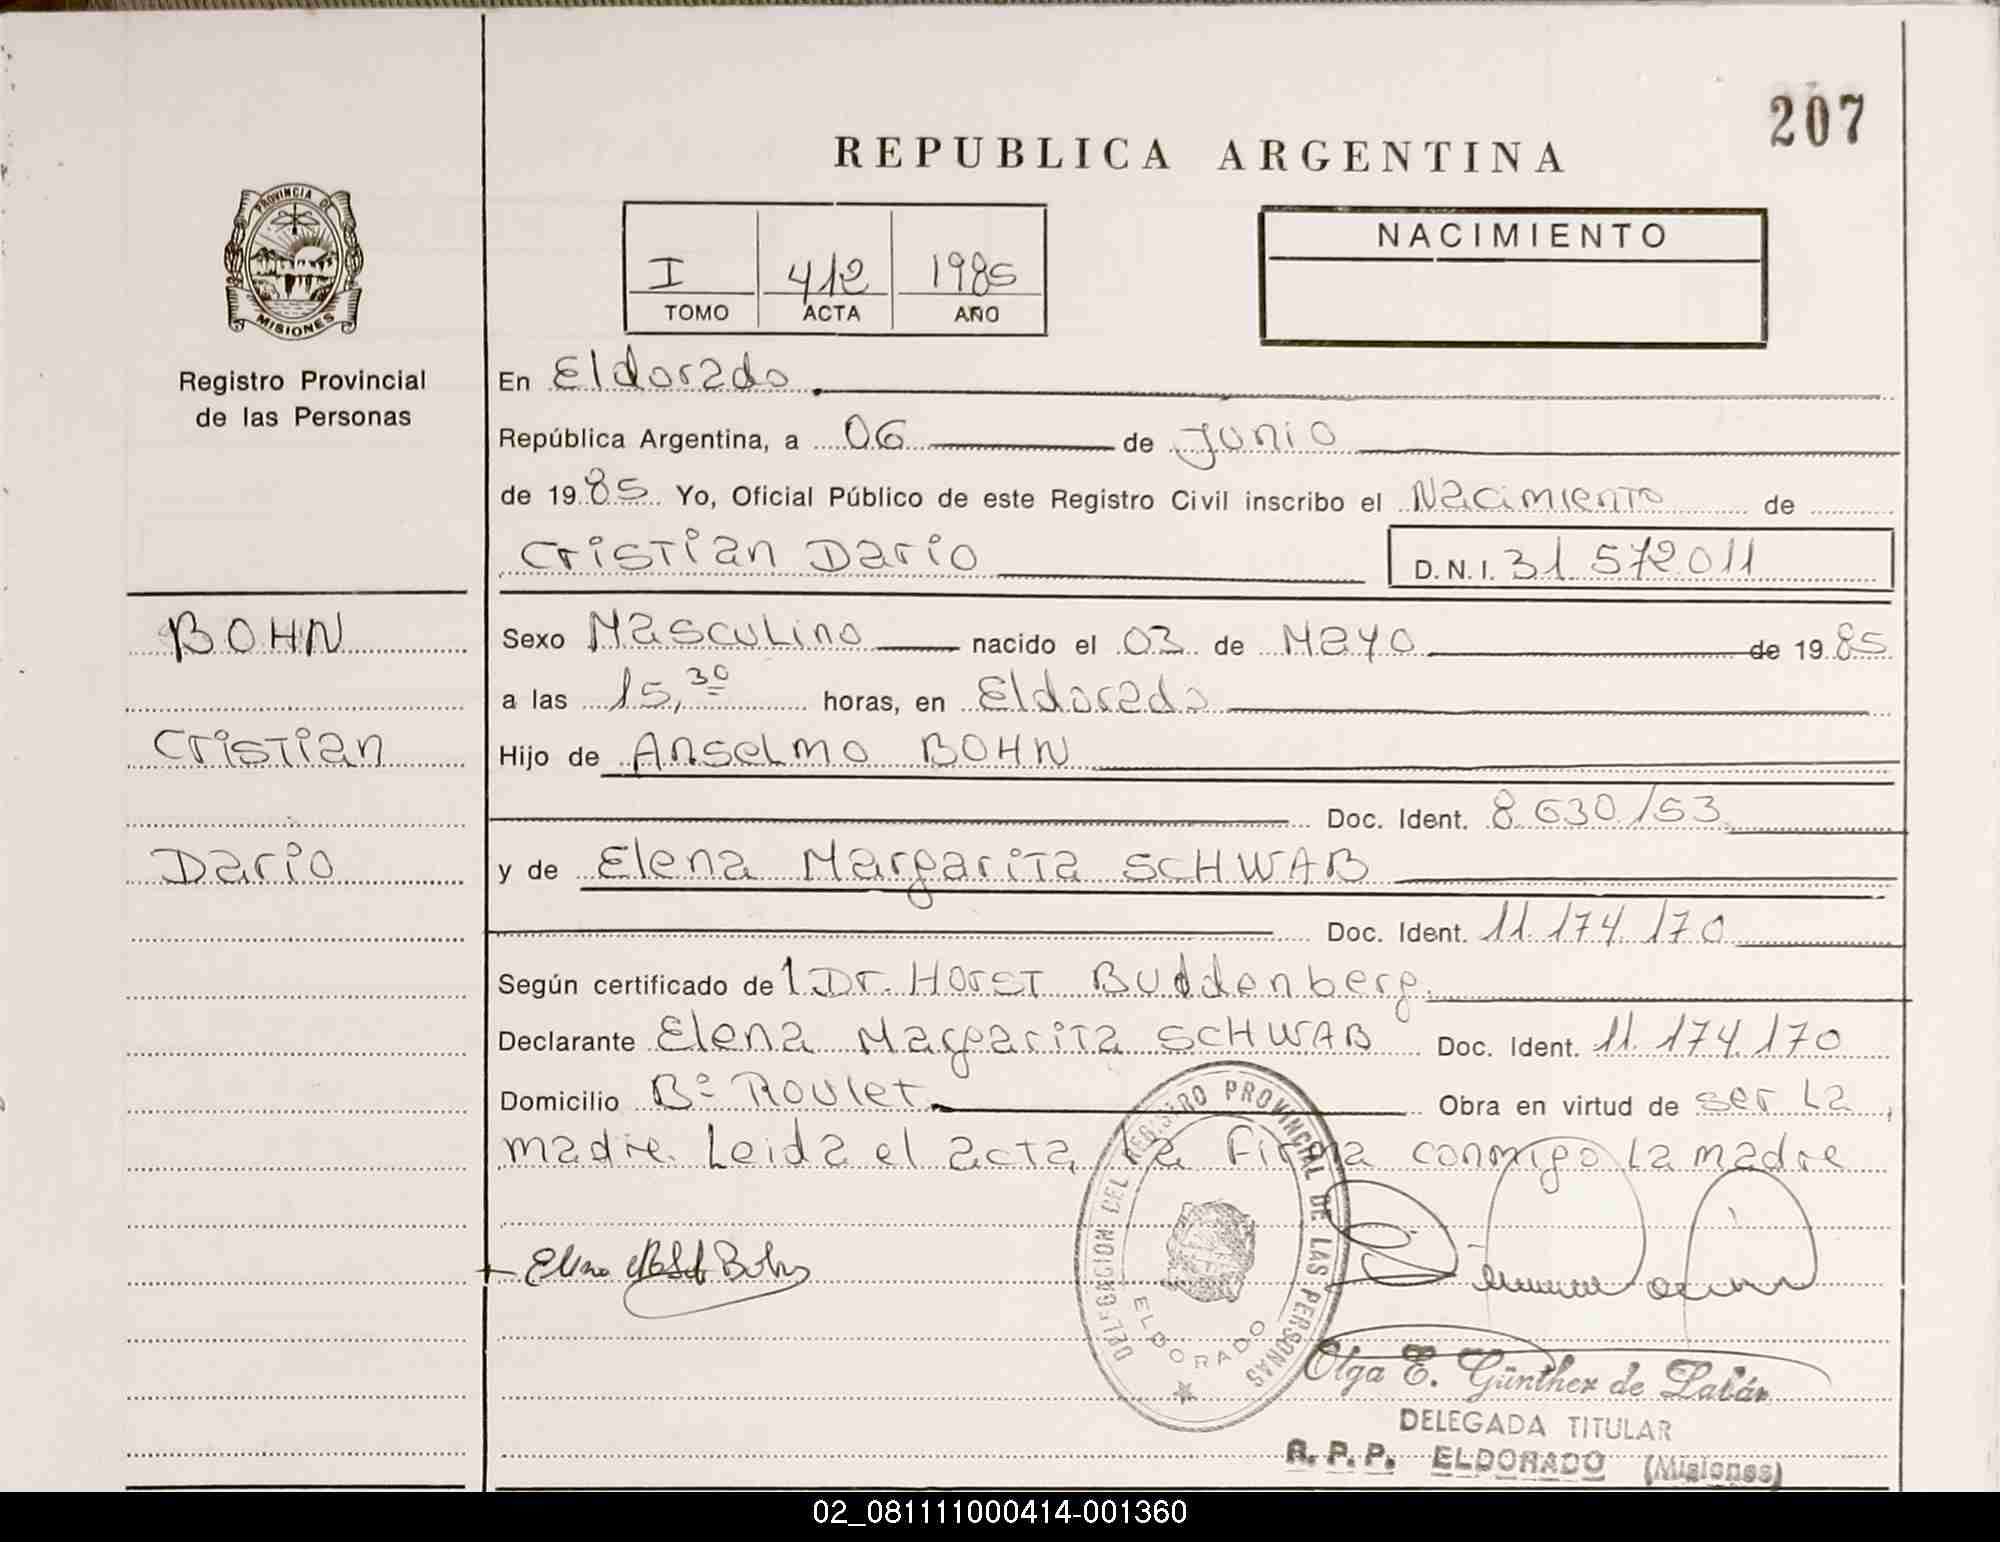 207
REPUBLICA ARGENTINA
PROVINCIA DE
MISIONES
Registro Provincial
de las Personas
I 412 1985
TOMO ACTA AÑO
NACIMIENTO
En Eldorado
República Argentina, a 06 de Junio
de 1985 Yo, Oficial Público de este Registro Civil inscribo el Nacimiento de
Cristian Dario D.N.I. 31 572 011
BOHN
Cristian
Dario
Sexo Masculino nacido el 03 de Mayo de 1985
a las 15,30 horas, en Eldorado
Hijo de Anselmo BOHN
Doc. Ident. 8 630/53
y de Elena Margarita SCHWAB
Doc. Ident. 11.174.170
Según certificado del Dr. Horst Buddenberg.
Declarante Elena Margarita SCHWAB Doc. Ident. 11.174.170
Domicilio Bº Roulet Obra en virtud de ser la
madre. Leida el acta, la Firma conmigo la madre
DELEGACION DEL REGISTRO PROVINCIAL DE LAS PERSONAS
ELDORADO
Olga E. Günther de
DELEGADA TITULAR
R. P. P. ELDORADO (Misiones)
02_081111000414-001360